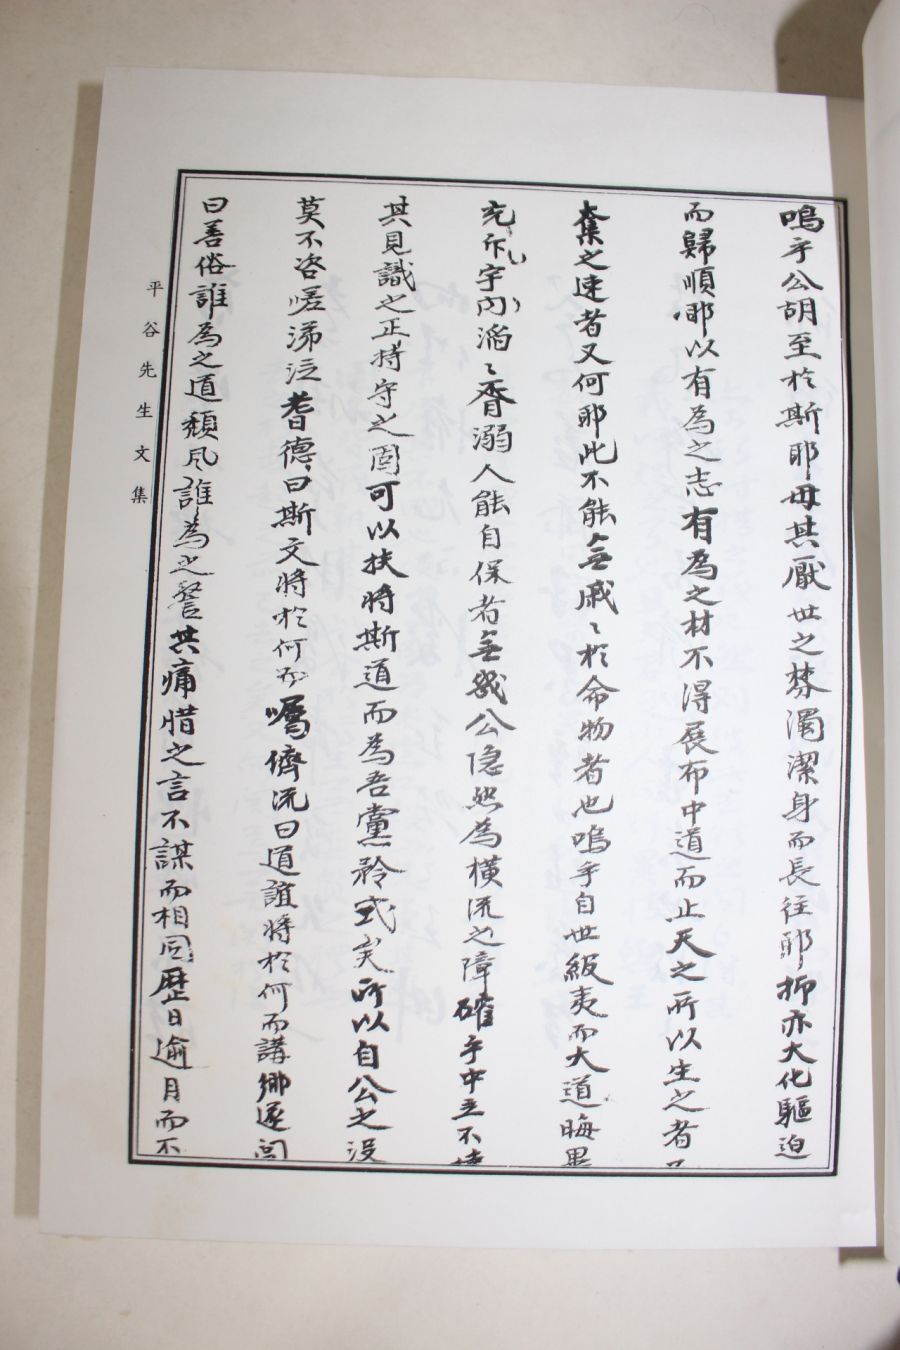 嗚乎公胡至於斯耶毋其厭世之棼濁潔身而長往耶抑亦大化驅迫
而歸順耶以有為之志有為之材不得展布中道而止天之所以生之者
奪之速者又何耶此不能無戚〻於命物者也嗚乎自世級夷而大道晦異
充斥宇內滔〻胥溺人能自保者無幾公隐然為橫流之障確乎中立不
其見識之正持守之固可以扶將斯道而為吾黨矜式矣所以自公之沒
莫不咨嗟涕泣耆德曰斯文將於何而囑儕流曰道誼將於何而講鄉邃閭
曰善俗誰為之道頹風誰為之警其痛惜之言不謀而相同歷日逾月而不
平谷先生文集